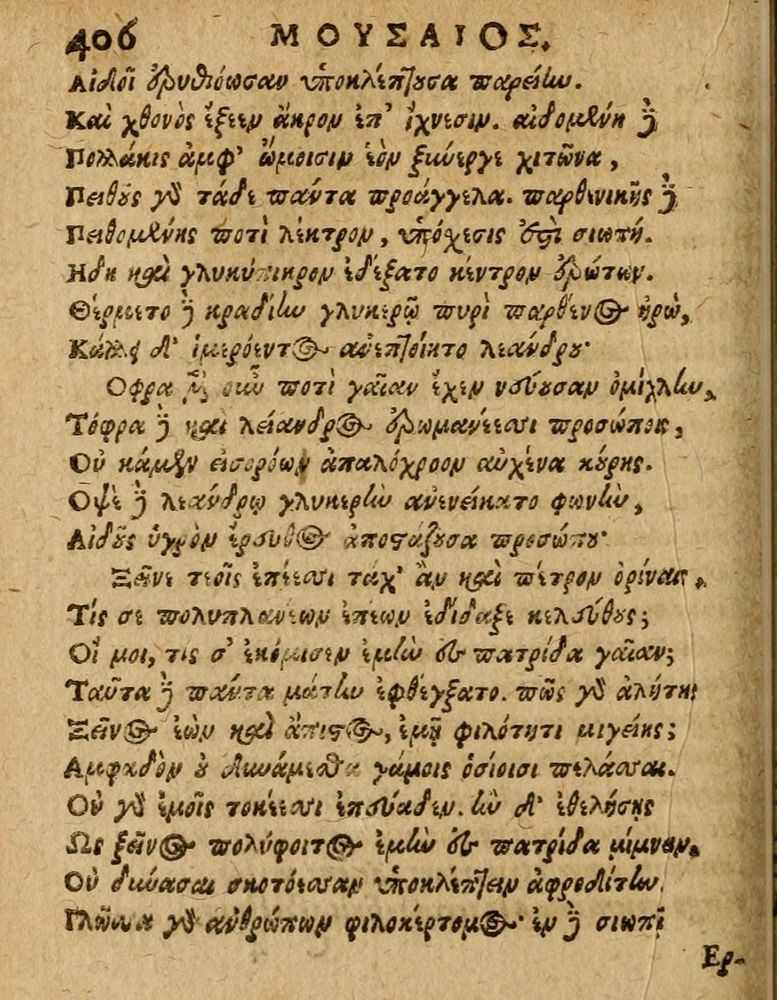 406 ΜΟΥΣΑΙΟΣ.
Αἰδοῖ ἐρυθιόωσαν ὑποκλέπτουσα παρείην.
Καὶ χθονὸς ἔξεεν ἄκρον ἐπ' ἴχνεσιν. αἰδομένη δὲ
Πολλάκις ἀμφ' ὤμοισιν ἑὸν ξυνέεργε χιτῶνα,
Πειθοῦς γὸ τάδε πάντα προάγγελα. παρθενικῆς δὲ
Πειθομένης ποτὶ λέκτρον, ὑπόχεσις ἐστὶ σιωπή.
Ηδη καὶ γλυκύπικρον ἐδέξατο κέντρον ἐρώτων.
Θέρμετο δὲ κραδίην γλυκερῷ πυρὶ παρθένος ἡρὼ,
Κάλλει δ' ἱμερόεντος ἀνεπτοίητο λεάνδρου·
Οφρα μὲν οὖν ποτὶ γαῖαν ἔχεν νεύουσαν ὀμίχλην,
Τόφρα δὲ καὶ λείανδρος ἐρωμανέεσσι προσώποις,
Οὐ κάμεν εἰσορόων ἁπαλόχροον αὐχένα κούρης.
Οψὲ δὲ λεάνδρῳ γλυκερὴν ἀνενείκατο φωνὴν,
Αἰδοῦς ὑγρὸν ἔρευθος ἀποστάζουσα προσώπου·
Ξεῖνε τεοῖς ἐπέεσσι τάχ' ἂν καὶ πέτρον ὀρίναις,
Τίς σε πολυπλανέων ἐπέων ἐδίδαξε κελεύθους;
Οἴ μοι, τίς σ' ἐκόμισεν ἐμὴν ἐς πατρίδα γαῖαν;
Ταῦτα δὲ πάντα μάτην ἐφθέγξατο. πῶς γὸ ἀλήτης
Ξεῖνος ἐὼν καὶ ἄπιστος, ἐμῇ φιλότητι μιγείης;
Αμφαδὸν οὐ δυνάμεσθα γάμοις ὁσίοισι πελάσσαι.
Οὐ γὸ ἐμοῖς τοκέεσσι ἐπεύαδεν. ἢν δ' ἐθελήσῃς
Ως ξεῖνος πολύφοιτος ἐμὴν ἐς πατρίδα μίμνειν,
Οὐ δύνασαι σκοτόεσσαν ὑποκλέπτειν ἀφροδίτην.
Γλῶσσα γὸ ἀνθρώπων φιλοκέρτομος· ἐν δὲ σιωπῇ
Ερ-